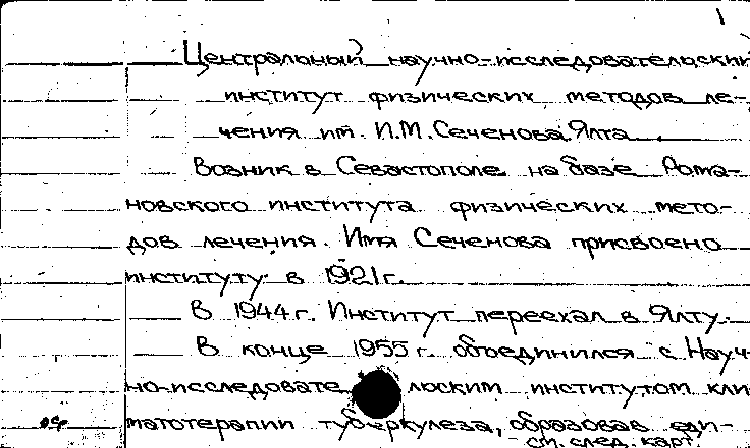 1
Центральный научно-исследовательский
институт физических методов ле-
чения им. И.М. Сеченова. Ялта
Возник в Севастополе на базе Рома-
новского института физических мето-
дов лечения. Имя Сеченова присвоено
институту в 1921 г.
В 1944 г. Институт переехал в Ялту.
В конце 1955 г. объединился с Науч-
но-исследовательским институтом кли-
матотерапии туберкулеза, образовав еди-
- см. след. карт.